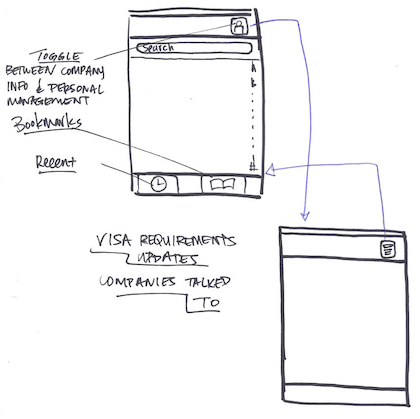 Search
TOGGLE
BETWEEN COMPANY
INFO & PERSONAL
MANAGEMENT
Bookmarks
Recent
A
#
VISA REQUIREMENTS
UPDATES
COMPANIES TALKED
TO